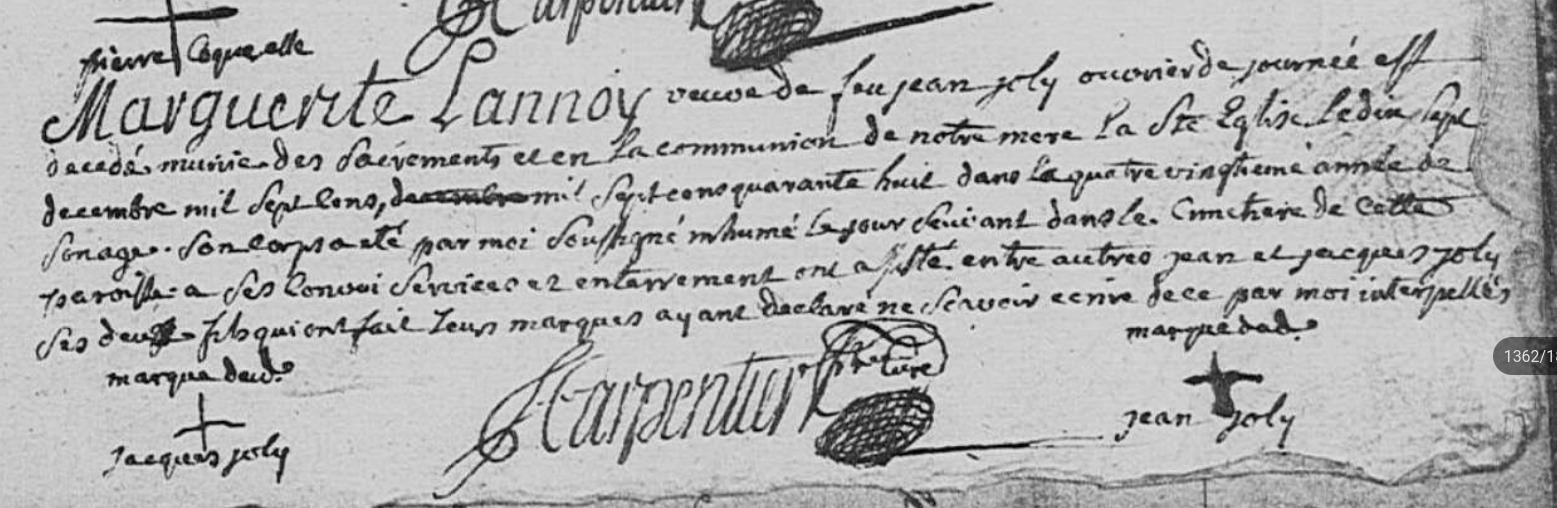 Carpentier
pierre Coquelle
Marguerite Lannoy veuve de feu jean joly ouvrier de journée est
decedé munie des Sacrements et en La communion de notre mere La Ste Eglise Le dix Sept
decembre mil Sept Cens, decembre mil Septcens quarante huit dans La quatrevingtieme année de
son age. Son Corps a eté par moi Soussigné inhumé Le jour Suivant dans le Cimetiere de Cette
paroisse a Ses Convoi Services et enterrement ont assisté entre autres jean et jacques joly
Ses deux fils qui ont fait Leurs marques ayant declaré ne Scavoir ecrire de ce par moi interpellés
marque dud.
marque dud.
Carpentier ptre Curé
jacques joly
jean joly
1362/1